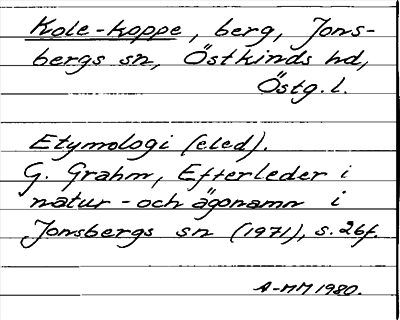 Kole-koppe, berg, Jons-
bergs sn, Östkinds hd,
Östg. l.
Etymologi (eled).
G. Grahm, Efterleder i
natur- och ägonamn i
Jonsbergs sn (1971), s. 26f.
A-MM 1980.